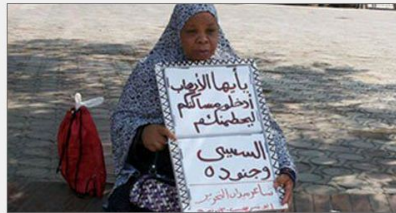 يأيها الأرهاب
أدخلو مساكنكم
ليحطمنكم
السيسى
وجنوده
شاعر ميدان التحرير